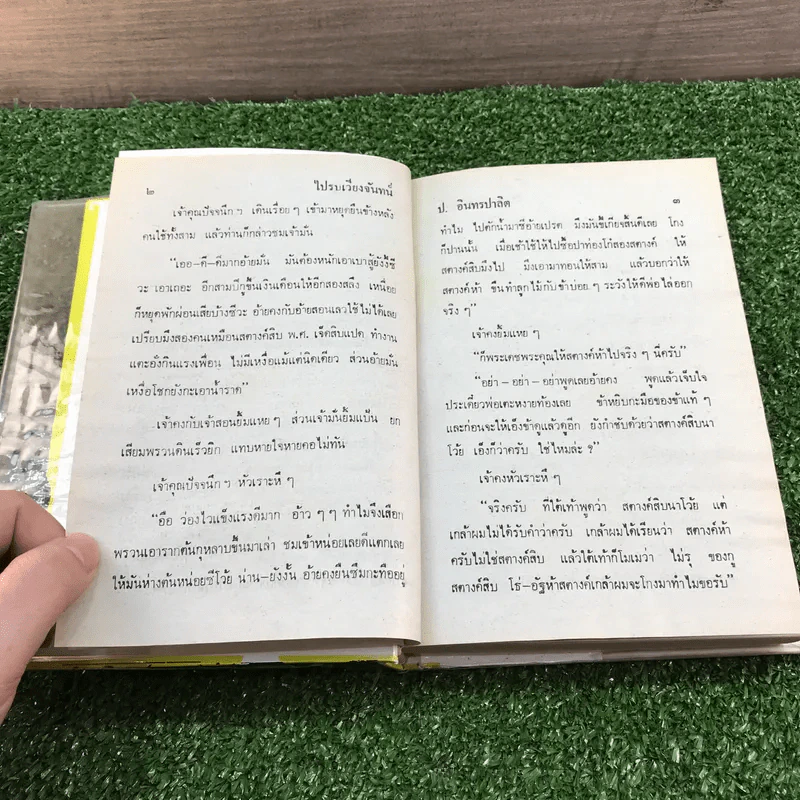 ๒ ไปรบเวียงจันทน์
เจ้าคุณปัจจนึก ฯ เดินเรื่อย ๆ เข้ามาหยุดยืนข้างหลัง
คนใช้ทั้งสาม แล้วท่านก็กล่าวชมเจ้ามั่น
“เออ–ดี–ดีมากอ้ายมั่น มันต้องหนักเอาเบาสู้ยังงี้ซี
วะ เอาเถอะ อีกสามปีกูขึ้นเงินเดือนให้อีกสองสลึง เหนื่อย
ก็หยุดพักผ่อนเสียบ้างซีวะ อ้ายคงกับอ้ายสอนเลวใช้ไม่ได้เลย
เปรียบมึงสองคนเหมือนสตางค์สิบ พ.ศ. เจ็ดสิบแปด ทำงาน
แตะอั๋งกินแรงเพื่อน ไม่มีเหงื่อแม้แต่นิดเดียว ส่วนอ้ายมั่น
เหงื่อโชกยังกะเอาน้ำราด”
เจ้าคงกับเจ้าสอนยิ้มแหย ๆ ส่วนเจ้ามั่นยิ้มแป้น ยก
เสียมพรวนดินเร็วยิก แทบหายใจหายคอไม่ทัน
เจ้าคุณปัจจนึก ฯ หัวเราะหึ ๆ
“อือ ว่องไวแข็งแรงดีมาก อ้าว ๆ ๆ ทำไมจึงเสือก
พรวนเอารากต้นกุหลาบขึ้นมาเล่า ชมเข้าหน่อยเลยดีแตกเลย
ให้มันห่างต้นหน่อยซีโว้ย น่าน–ยังงั้น อ้ายคงยืนซึมกะทืออยู่
ป. อินทรปาลิต ๓
ทำไม ไปตักน้ำมาซีอ้ายเปรต มึงมันขี้เกียจสิ้นดีเลย โกง
ก็ปานนั้น เมื่อเช้าใช้ให้ไปซื้อปาท่องโก๋สองสตางค์ ให้
สตางค์สิบมึงไป มึงเอามาทอนให้สาม แล้วบอกว่าให้
สตางค์ห้า ขืนทำลูกไม้กับข้าบ่อย ๆ ระวังให้ดีพ่อไล่ออก
จริง ๆ”
เจ้าคงยิ้มแหย ๆ
“ก็พระเดชพระคุณให้สตางค์ห้าไปจริง ๆ นี่ครับ”
“อย่า – อย่า – อย่าพูดเลยอ้ายคง พูดแล้วเจ็บใจ
ประเดี๋ยวพ่อเตะหงายท้องเลย ข้าหยิบกะมือของข้าแท้ ๆ
และก่อนจะให้เอ็งข้าดูแล้วดูอีก ยังกำชับด้วยว่าสตางค์สิบนา
โว้ย เอ็งก็ว่าครับ ใช่ไหมล่ะ ?”
เจ้าคงหัวเราะหึ ๆ
“จริงครับ ที่ใต้เท้าพูดว่า สตางค์สิบนาโว้ย แต่
เกล้าผมไม่ได้รับคำว่าครับ เกล้าผมได้เรียนว่า สตางค์ห้า
ครับไม่ใช่สตางค์สิบ แล้วใต้เท้าก็โมเมว่า ไม่รู้ ของกู
สตางค์สิบ โธ่–อัฐห้าสตางค์เกล้าผมจะโกงมาทำไมขอรับ”